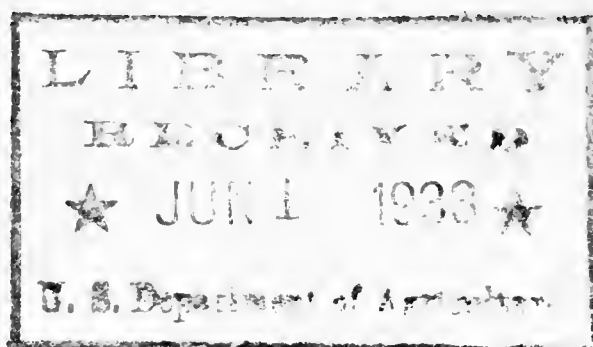 LIBRARY
RECEIVED
★ JUN 1 1933 ★
U. S. Department of Agriculture